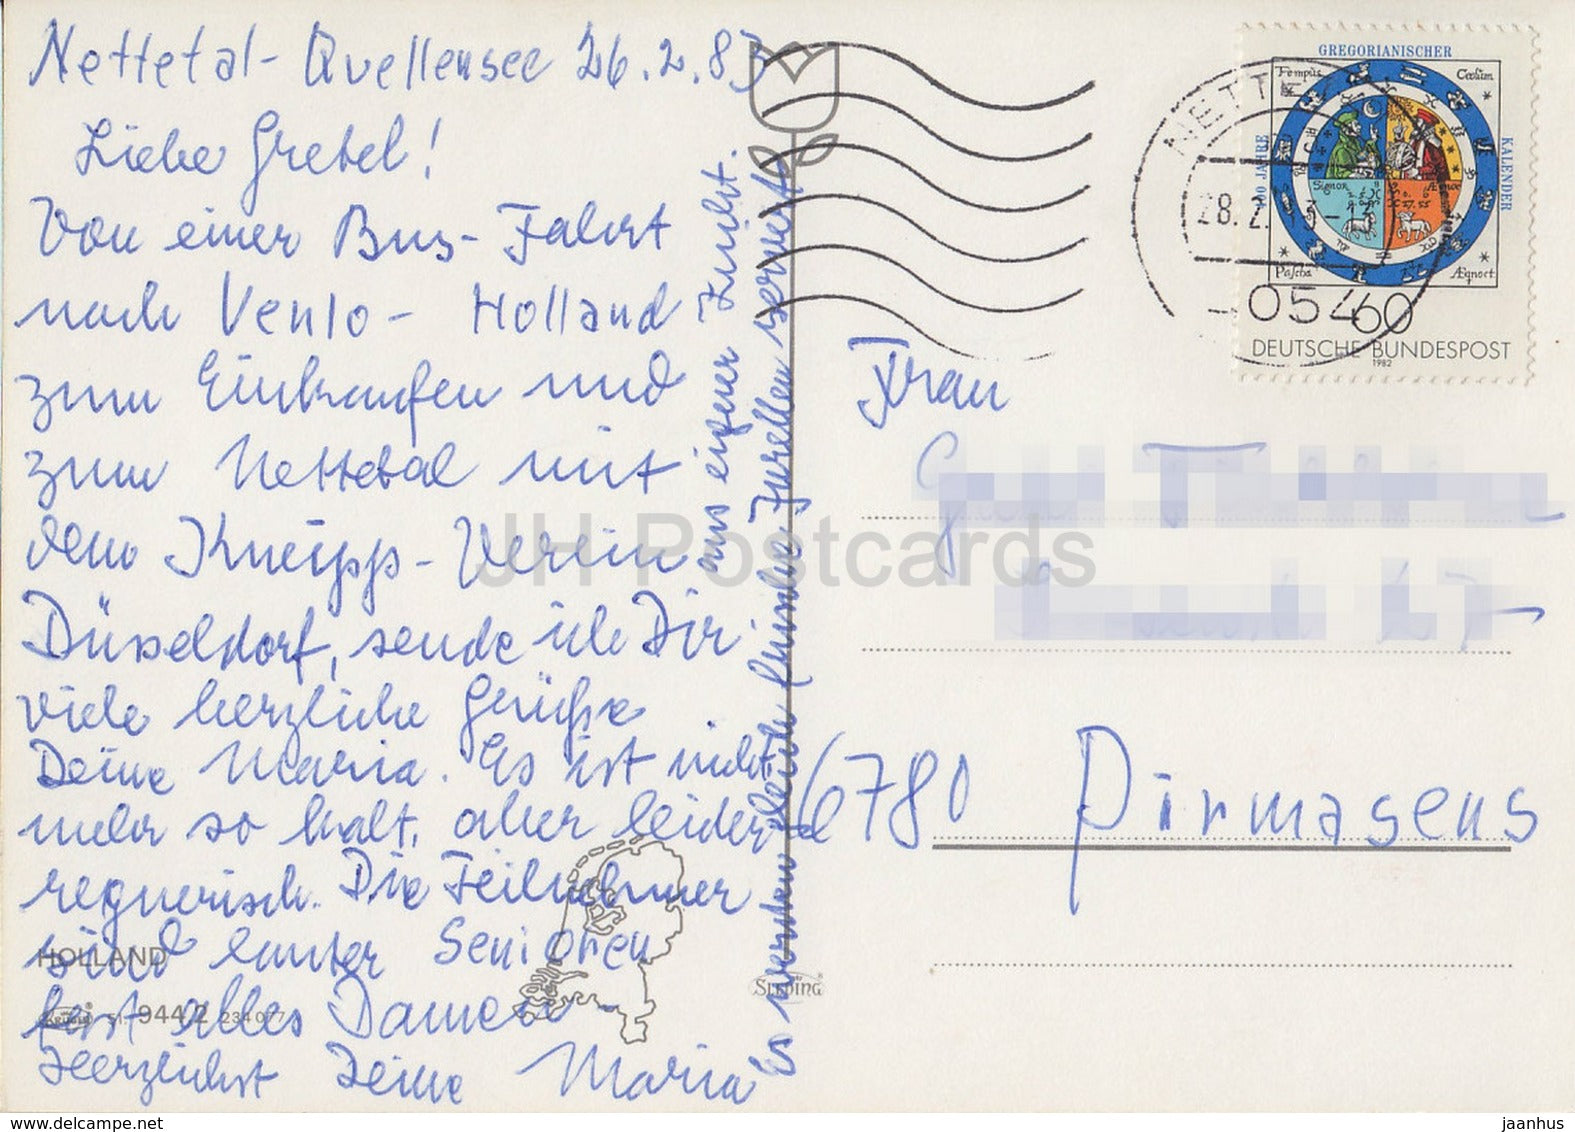 Nettetal-Quellensee 26.2.83
Liebe Gretel!
Von einer Bus-Fahrt
nach Venlo - Holland
zum Einkaufen und
zum Nettetal mit
dem Kneipp-Verein
Düsseldorf, sende ich Dir
viele herzliche Grüße
Deine Maria. Es ist nicht
mehr so kalt, aber leider
regnerisch. Die Teilnehmer
sind lauter Senioren
fast alles Damen -
Herzlichst Deine Maria
Es werden gleich frische Forellen serviert
aus eigner Zucht.
HOLLAND
51. 944/2 234077
GREGORIANISCHER
KALENDER
400 JAHRE
Tempus
Cœlum
Signor
Æquor
Pascha
Æqnoct
60
DEUTSCHE BUNDESPOST
1982
NETT
28.2. 3-13
054
Frau
6780 Pirmasens
JH Postcards
delcampe.net
jaanhus